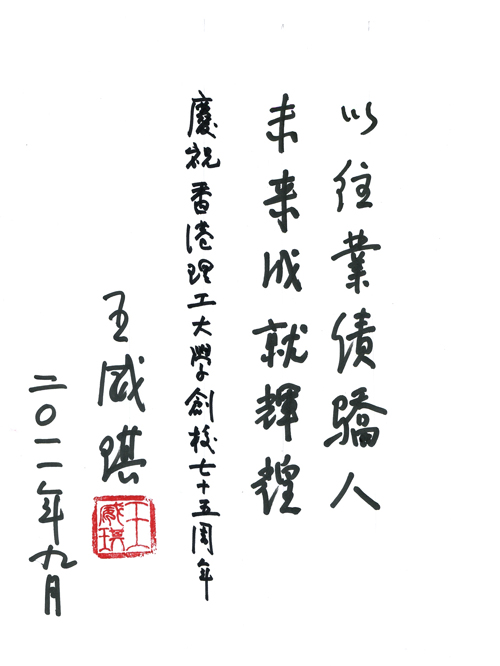 以往業績驕人
未来成就輝煌
慶祝香港理工大學創校七十五周年
王威琪
二〇一一年九月
王威琪